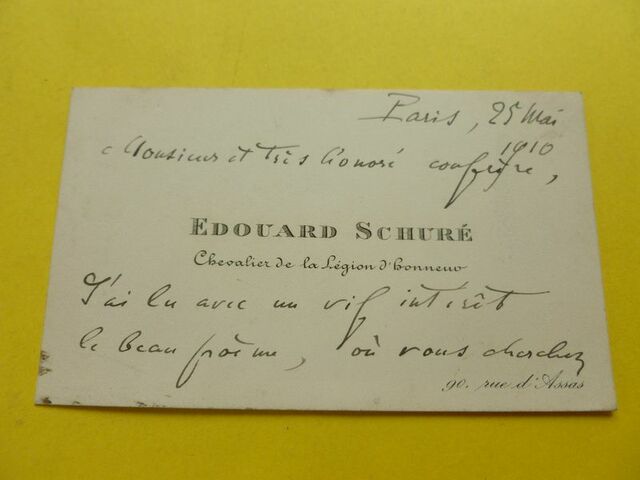 Paris, 25 Mai
1910
Monsieur et très honoré confrère,
EDOUARD SCHURÉ
Chevalier de la Légion d'honneur
J'ai lu avec un vif intérêt
le beau poème, où vous cherchez
90, rue d'Assas